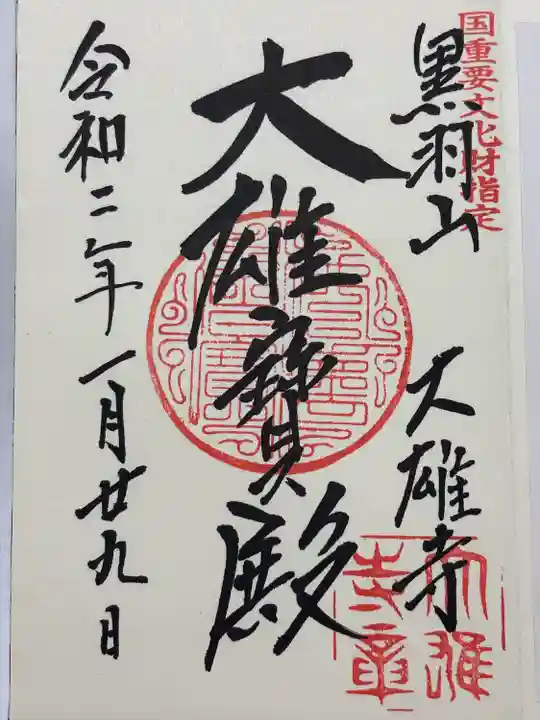 国重要文化財指定
黒羽山　大雄寺
大雄寶殿
令和二年一月廿九日